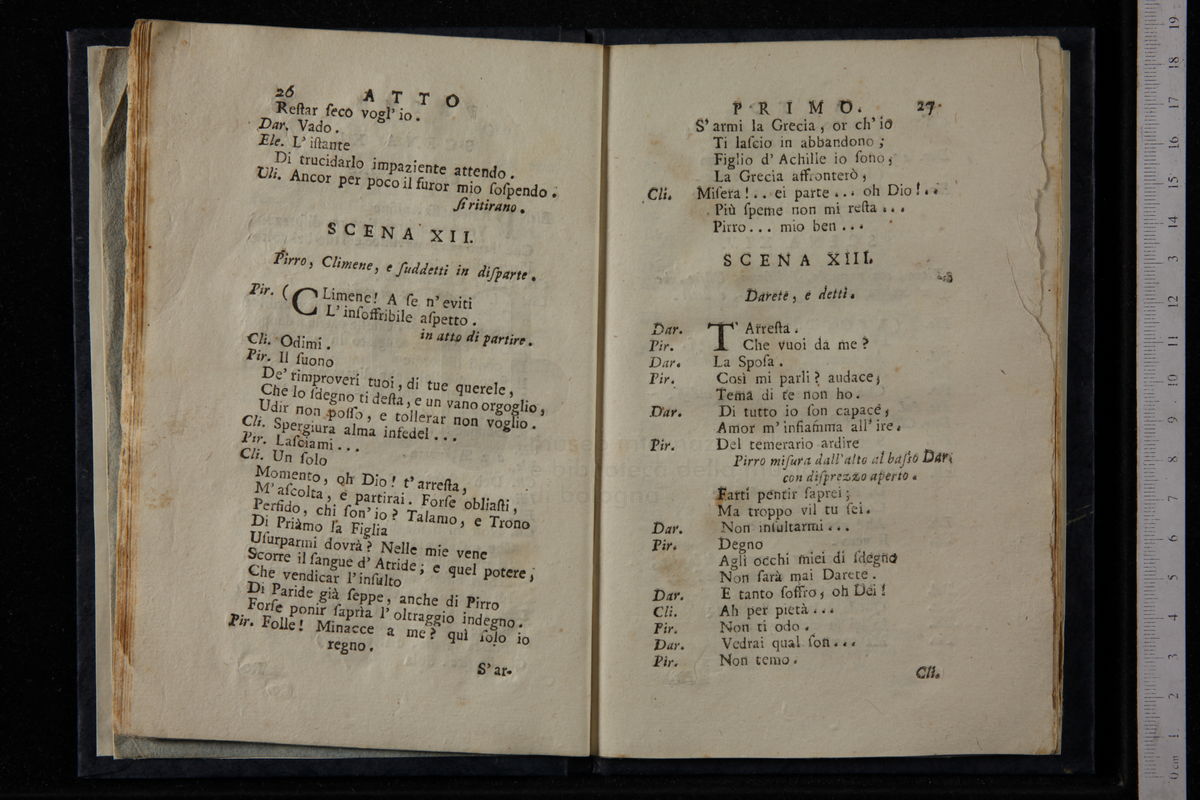 26 ATTO
Reſtar ſeco vogl' io.
Dar. Vado.
Ele. L' iſtante
Di trucidarlo impaziente attendo.
Uli. Ancor per poco il furor mio ſoſpendo.
ſi ritirano.
SCENA XII.
Pirro, Climene, e ſuddetti in diſparte.
Pir. (CLimene! A ſe n' eviti
L' inſoffribile aſpetto.
in atto di partire.
Cli. Odimi.
Pir. Il ſuono
De' rimproveri tuoi, di tue querele,
Che lo ſdegno ti deſta, e un vano orgoglio,
Udir non poſſo, e tollerar non voglio.
Cli. Spergiura alma infedel...
Pir. Laſciami...
Cli. Un ſolo
Momento, oh Dio! t' arreſta,
M' aſcolta, e partirai. Forſe obliaſti,
Perfido, chi ſon' io? Talamo, e Trono
Di Priàmo la Figlia
Uſurparmi dovrà? Nelle mie vene
Scorre il ſangue d' Atride; e quel potere,
Che vendicar l' inſulto
Di Paride già ſeppe, anche di Pirro
Forſe ponir ſaprìa l' oltraggio indegno.
Pir. Folle! Minacce a me? quì ſolo io
regno.
S' ar-
PRIMO. 27
S' armi la Grecia, or ch' io
Ti laſcio in abbandono;
Figlio d' Achille io ſono,
La Grecia affronterò,
Cli. Miſera!.. ei parte... oh Dio!..
Più ſpeme non mi reſta...
Pirro... mio ben...
SCENA XIII.
Darete, e detti.
Dar. T' Arreſta.
Pir. Che vuoi da me?
Dar. La Spoſa.
Pir. Così mi parli? audace;
Tema di te non ho.
Dar. Di tutto io ſon capace,
Amor m' infiamma all' ire.
Pir. Del temerario ardire
Pirro miſura dall' alto al baſſo Dar.
con diſprezzo aperto.
Farti pentir ſaprei;
Ma troppo vil tu ſei.
Dar. Non inſultarmi...
Pir. Degno
Agli occhi miei di ſdegno
Non ſarà mai Darete.
Dar. E tanto ſoffro, oh Dei!
Cli. Ah per pietà...
Pir. Non ti odo.
Dar. Vedrai qual ſon...
Pir. Non temo.
Cli.